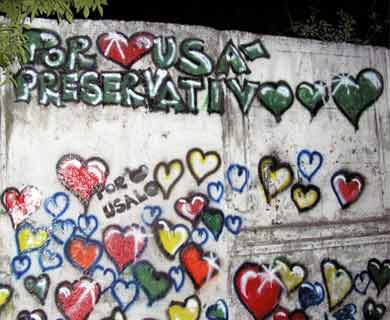 POR ❤ USA
PRESERVATIVO
POR ❤
USALO